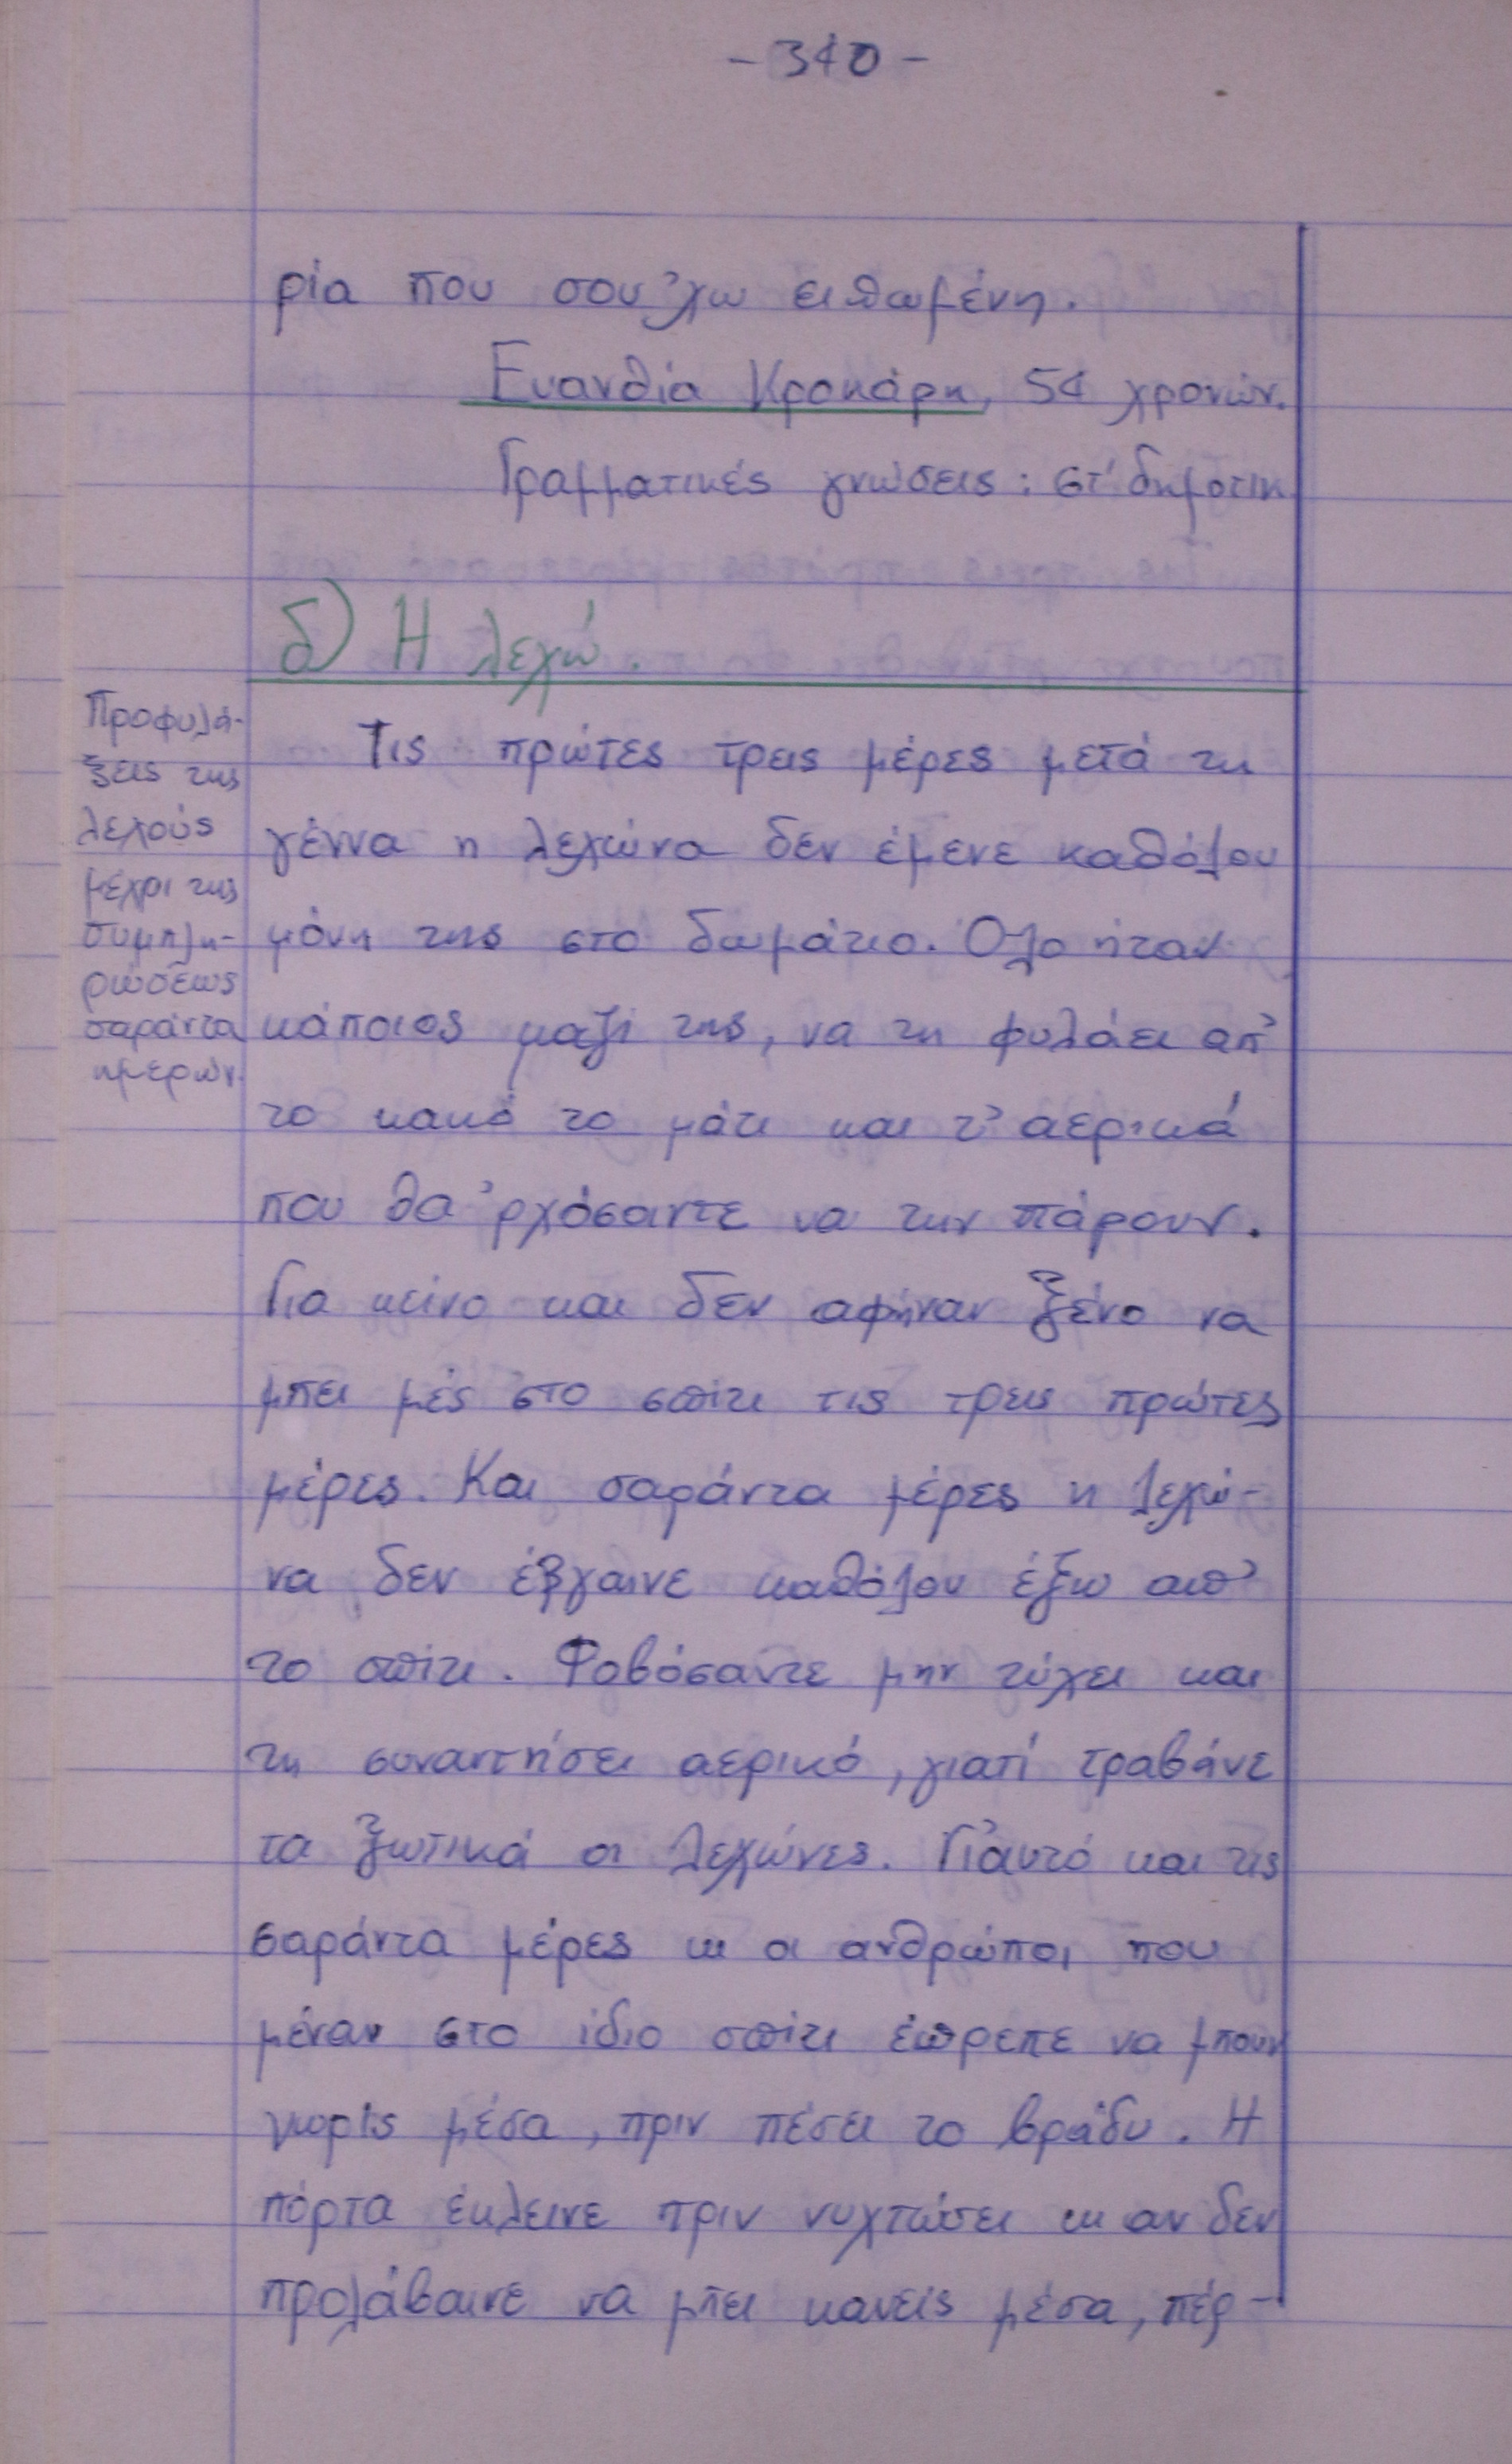 - 340 -
ρία που σου 'χω ειπωμένη.
Ευανθία Κροκάρη, 54 χρονών.
Γραμματικές γνώσεις: στ' δημοτικ
δ) Η λεχώ.
Προφυλά-
ξεις της
λεχούς
μέχρι της
συμπλη-
ρώσεως
σαράντα
ημερών.
Τις πρώτες τρεις μέρες μετά τη
γέννα η λεχώνα δεν έμενε καθόλου
μόνη της στο δωμάτιο. Όλο ήταν
κάποιος μαζί της, να τη φυλάει απ'
το κακό το μάτι και τ' αερικά
που θα 'ρχόσαντε να την πάρουν.
Για κείνο και δεν αφήναν ξένο να
μπει μές στο σπίτι τις τρεις πρώτες
μέρες. Και σαράντα μέρες η λεχώ-
να δεν έβγαινε καθόλου έξω απ'
το σπίτι. Φοβόσαντε μην τύχει και
τη συναντήσει αερικό, γιατί τραβάνε
τα ξωτικά οι λεχώνες. Γι' αυτό και τις
σαράντα μέρες κι οι ανθρώποι που
μέναν στο ίδιο σπίτι έπρεπε να μπουν
γωρίς μέσα, πριν πέσει το βράδυ. Η
πόρτα έκλεινε πριν νυχτώσει κι αν δεν
προλάβαινε να μπει κανείς μέσα, πέρ-